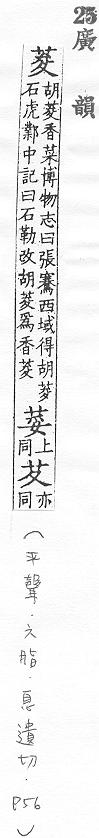 25 廣韻
荾
胡荾香菜博物志曰張騫西域得胡荾
石虎鄴中記曰石勒改胡荾爲香荾
荽
上同
芕
亦同
(平聲.六脂.息遺切.P56)